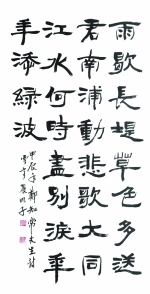 雨歇長堤草色多送
君南浦動悲歌大同
江水何時盡別淚年
年添綠波
甲辰年鄭知常先生詩